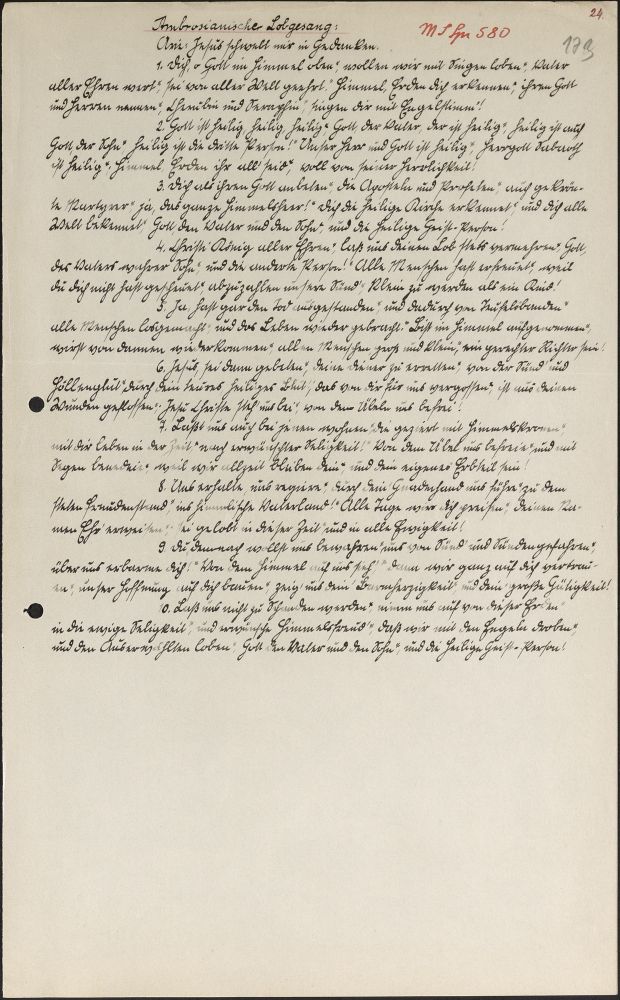 24.
Ambrosianischer Lobgesang:
MS Hn 580
179
Arie: Jesus schwebt mir in Gedanken.
1. Dich, o Gott im Himmel oben, wollen wir mit Singen loben, Vater
aller Ehren wert, sei von aller Welt geehrt! Himmel, Erden dich erkennen, ihren Gott
und Herren nennen, Cherubin und Seraphin, singen dir mit Engelstimm!
2. Gott ist heilig, heilig, heilig, Gott, der Vater, der ist heilig, heilig ist auch
Gott der Sohn, heilig ist die dritte Person! Unser Herr und Gott ist heilig, Herrgott Sabaoth
ist heilig, Himmel, Erden ihr all' seid, voll von seiner Herrlichkeit!
3. Dich als ihren Gott anbeten, die Aposteln und Propheten, auch gekrön-
te Martyrer, ja, das ganze Himmelsheer! Dich die heilige Kirche erkennet, und dich alle
Welt bekennet, Gott den Vater und den Sohn, und die heilige Geist-Person!
4. Christe König aller Ehren, laß uns deinen Lob stets vermehren, Gott,
des Vaters wahrer Sohn, und die anderte Person! Alle Menschen hast erfreuet, weil
du dich nicht hast gescheuet, abzuzahlen unsere Sünd, klein zu werden als ein Kind!
5. Ja, hast gar den Tod ausgestanden, und dadurch von Teufelsbanden
alle Menschen losgemacht, und das Leben wieder gebracht. Bist im Himmel aufgenommen,
wirst von dannen wiederkommen, allen Menschen groß und klein, ein gerechter Richter sein!
6. Jesus, sei dann gebeten, deine Diener zu erretten, von der Sünd und
Höllenglut, durch dein teures heiliges Blut, das von dir für uns vergossen, ist aus deinen
Wunden geflossen, Jesu Christe steh uns bei, von dem Übeln uns befrei!
7. Laßt uns auch bei jenen wohnen, die geziert mit Himmelskronen,
mit dir leben in der Zeit, nach erwünschter Seligkeit! Von dem Übel uns befreie, und mit
Segen benedeie, weil wir allzeit bleiben dein, und dein eigenes Erbteil sein!
8. Uns erhalte, uns regiere, durch dein Gnadenhand uns führe, zu dem
steten Freudenstand, ins himmlische Vaterland! Alle Tage wir dich preisen, deinen Na-
men Ehr erweisen, sei gelobt in dieser Zeit, und in alle Ewigkeit!
9. Du demnach wollst uns bewahren, uns von Sünd und Sündengefahren,
über uns erbarme dich! Von dem Himmel auf uns sieh, dann wir ganz auf dich vertrau-
en, unser Hoffnung auf dich bauen, zeig uns dein Barmherzigkeit, und dein große Gütigkeit!
10. Laß uns nicht zu Schanden werden, nimm uns auf von dieser Erden
in die ewige Seligkeit, und erwünschte Himmelsfreud, daß wir mit den Engeln droben,
und den Auserwählten loben, Gott den Vater und den Sohn, und die heilige Geist-Person!